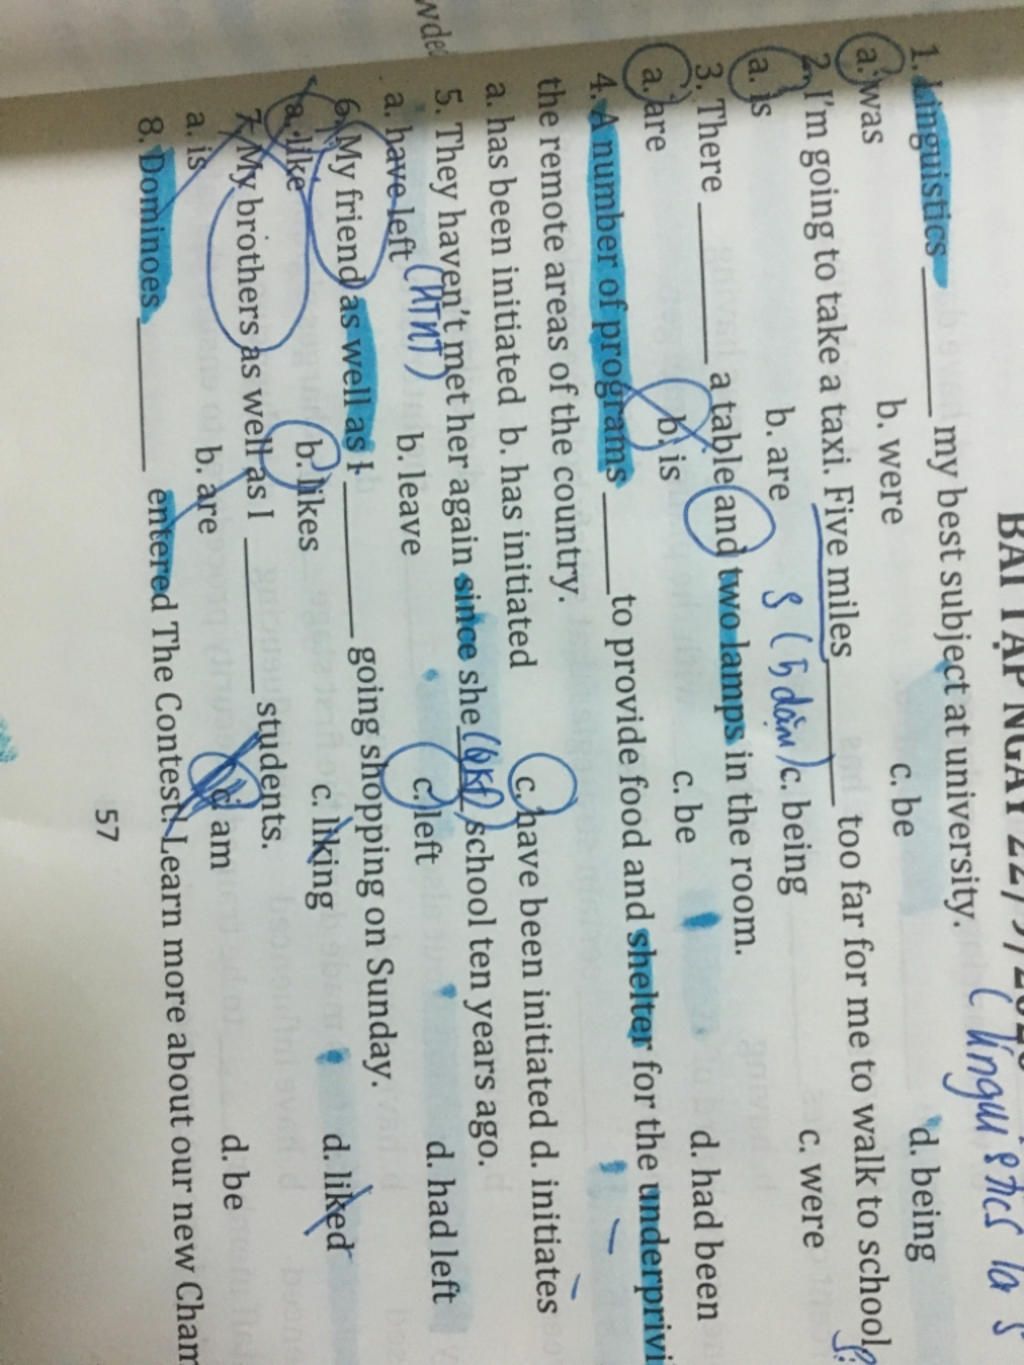 BÀI TẬP NGÀY 22/
( linguistics là S
1. Linguistics ______ my best subject at university.
a. was b. were c. be d. being
2. I'm going to take a taxi. Five miles ______ too far for me to walk to school.
S (
a. is b. are c. being c. were
3. There ______ a table and two lamps in the room.
a. are b. is c. be d. had been
4. A number of programs ______ to provide food and shelter for the underprivi
the remote areas of the country.
a. has been initiated b. has initiated c. have been initiated d. initiates
5. They haven't met her again since she ______ school ten years ago.
(QKĐ)
a. have left b. leave c. left d. had left
(HTHT)
6. My friend as well as I ______ going shopping on Sunday.
a. like b. likes c. liking d. liked
7. My brothers as well as I ______ students.
a. is b. are c. am d. be
8. Dominoes ______ entered The Contest! Learn more about our new Cham
57